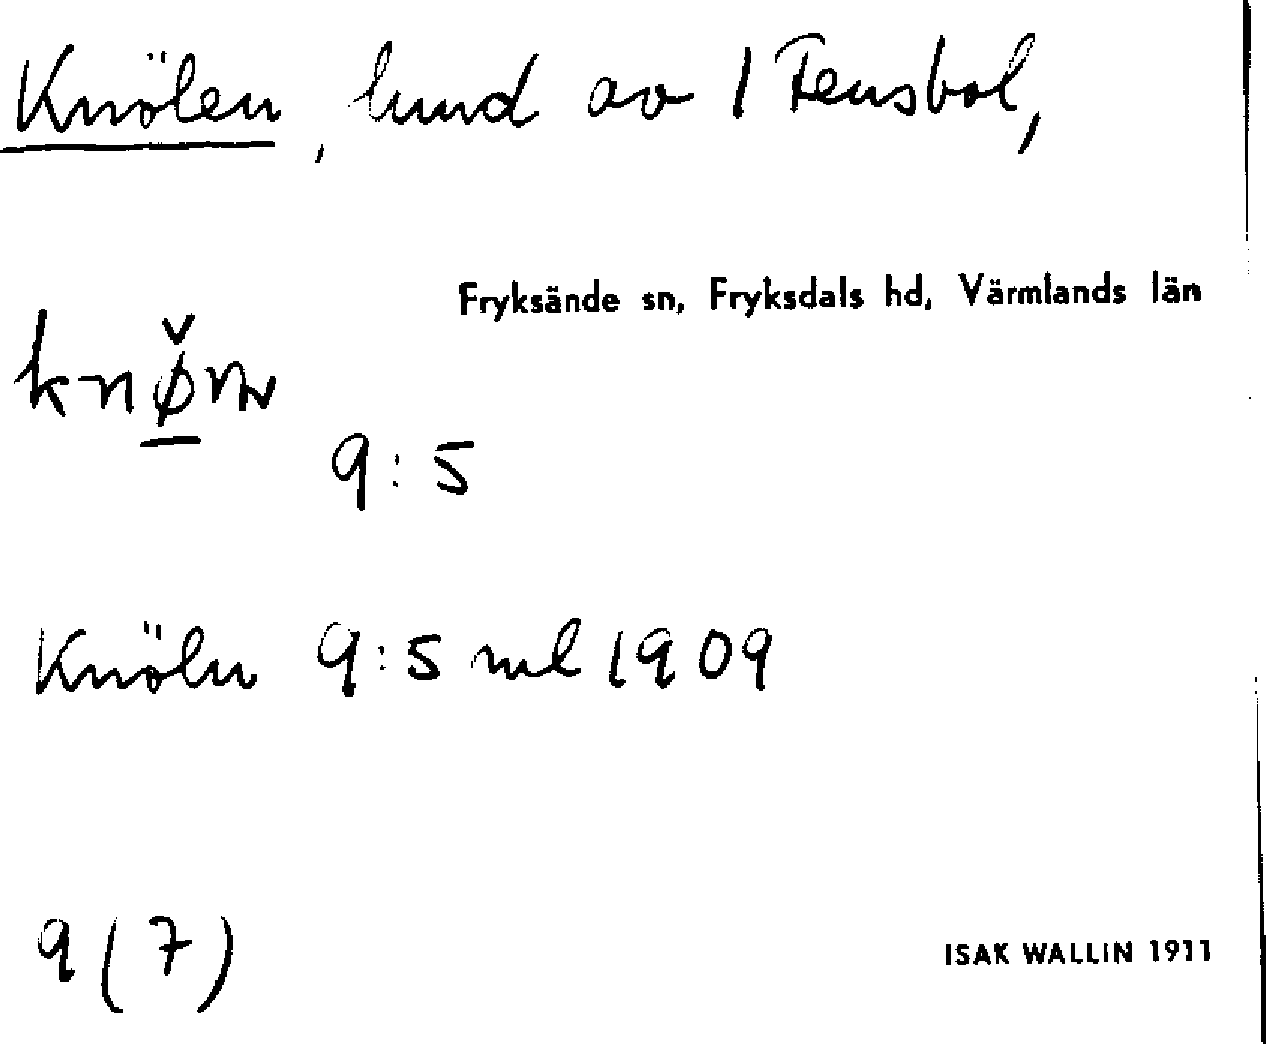 Knölen, lund av 1 Tensbol,
Fryksände sn, Fryksdals hd, Värmlands län
9:5
Knöln 9:5 ml 1909
9 (7)
ISAK WALLIN 1911